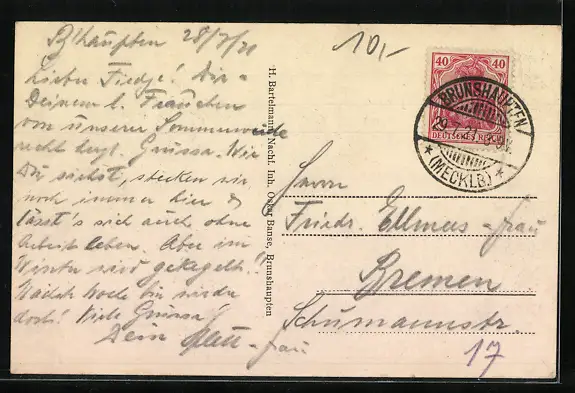 B'haupten 28/7/21
Lieber Fiedje! Dir &
Deinem l. Frauchen
von unserer Sommerweide
recht hrzl. Grüsse. Wie
Du siehst, stecken wir
noch immer hier &
lässt's sich auch ohne
Arbeit leben. Aber im
Winter wird gekegelt!!
Nächste Woche bin wieder
dort! Viele Grüsse!
Dein & Frau
10,-
H. Bartelmann Nachf. Inh. Oskar Banse, Brunshaupten
40 40
DEUTSCHES REICH
BRUNSHAUPTEN
(MECKLB.)
Herrn
Friedr. Ellmers & Frau
Bremen
Schumannstr
17